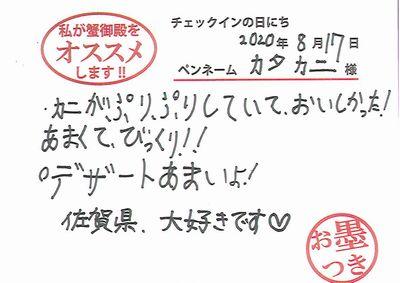 私が蟹御殿を
オススメ
します!!
チェックインの日にち
2020年 8月17日
ペンネーム カタカニ 様
・カニがぷりぷりしていて、おいしかった!
あまくて、びっくり!!
○デザートあまいよ!
佐賀県、大好きです♡
お墨
つき